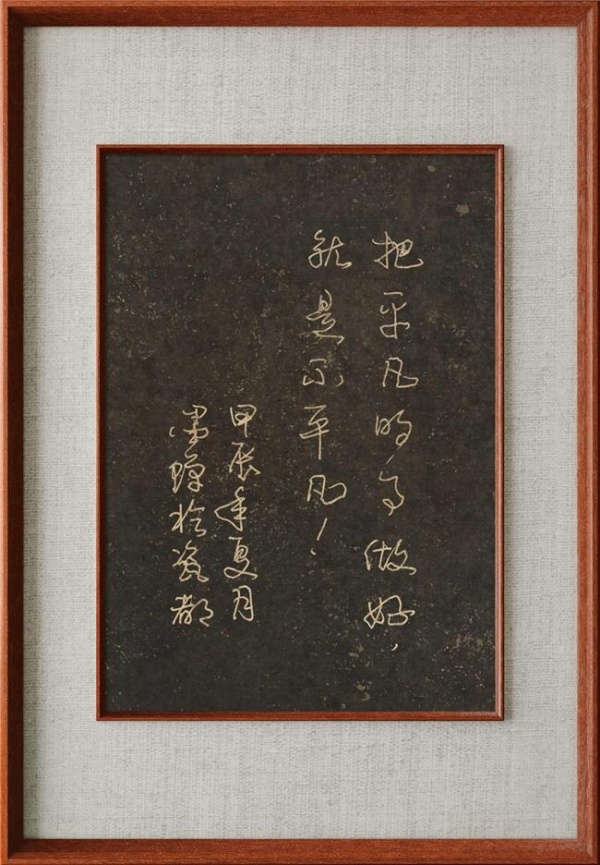 把平凡的事做好，
就是不平凡！
甲辰年夏月
墨蟬於瓷都